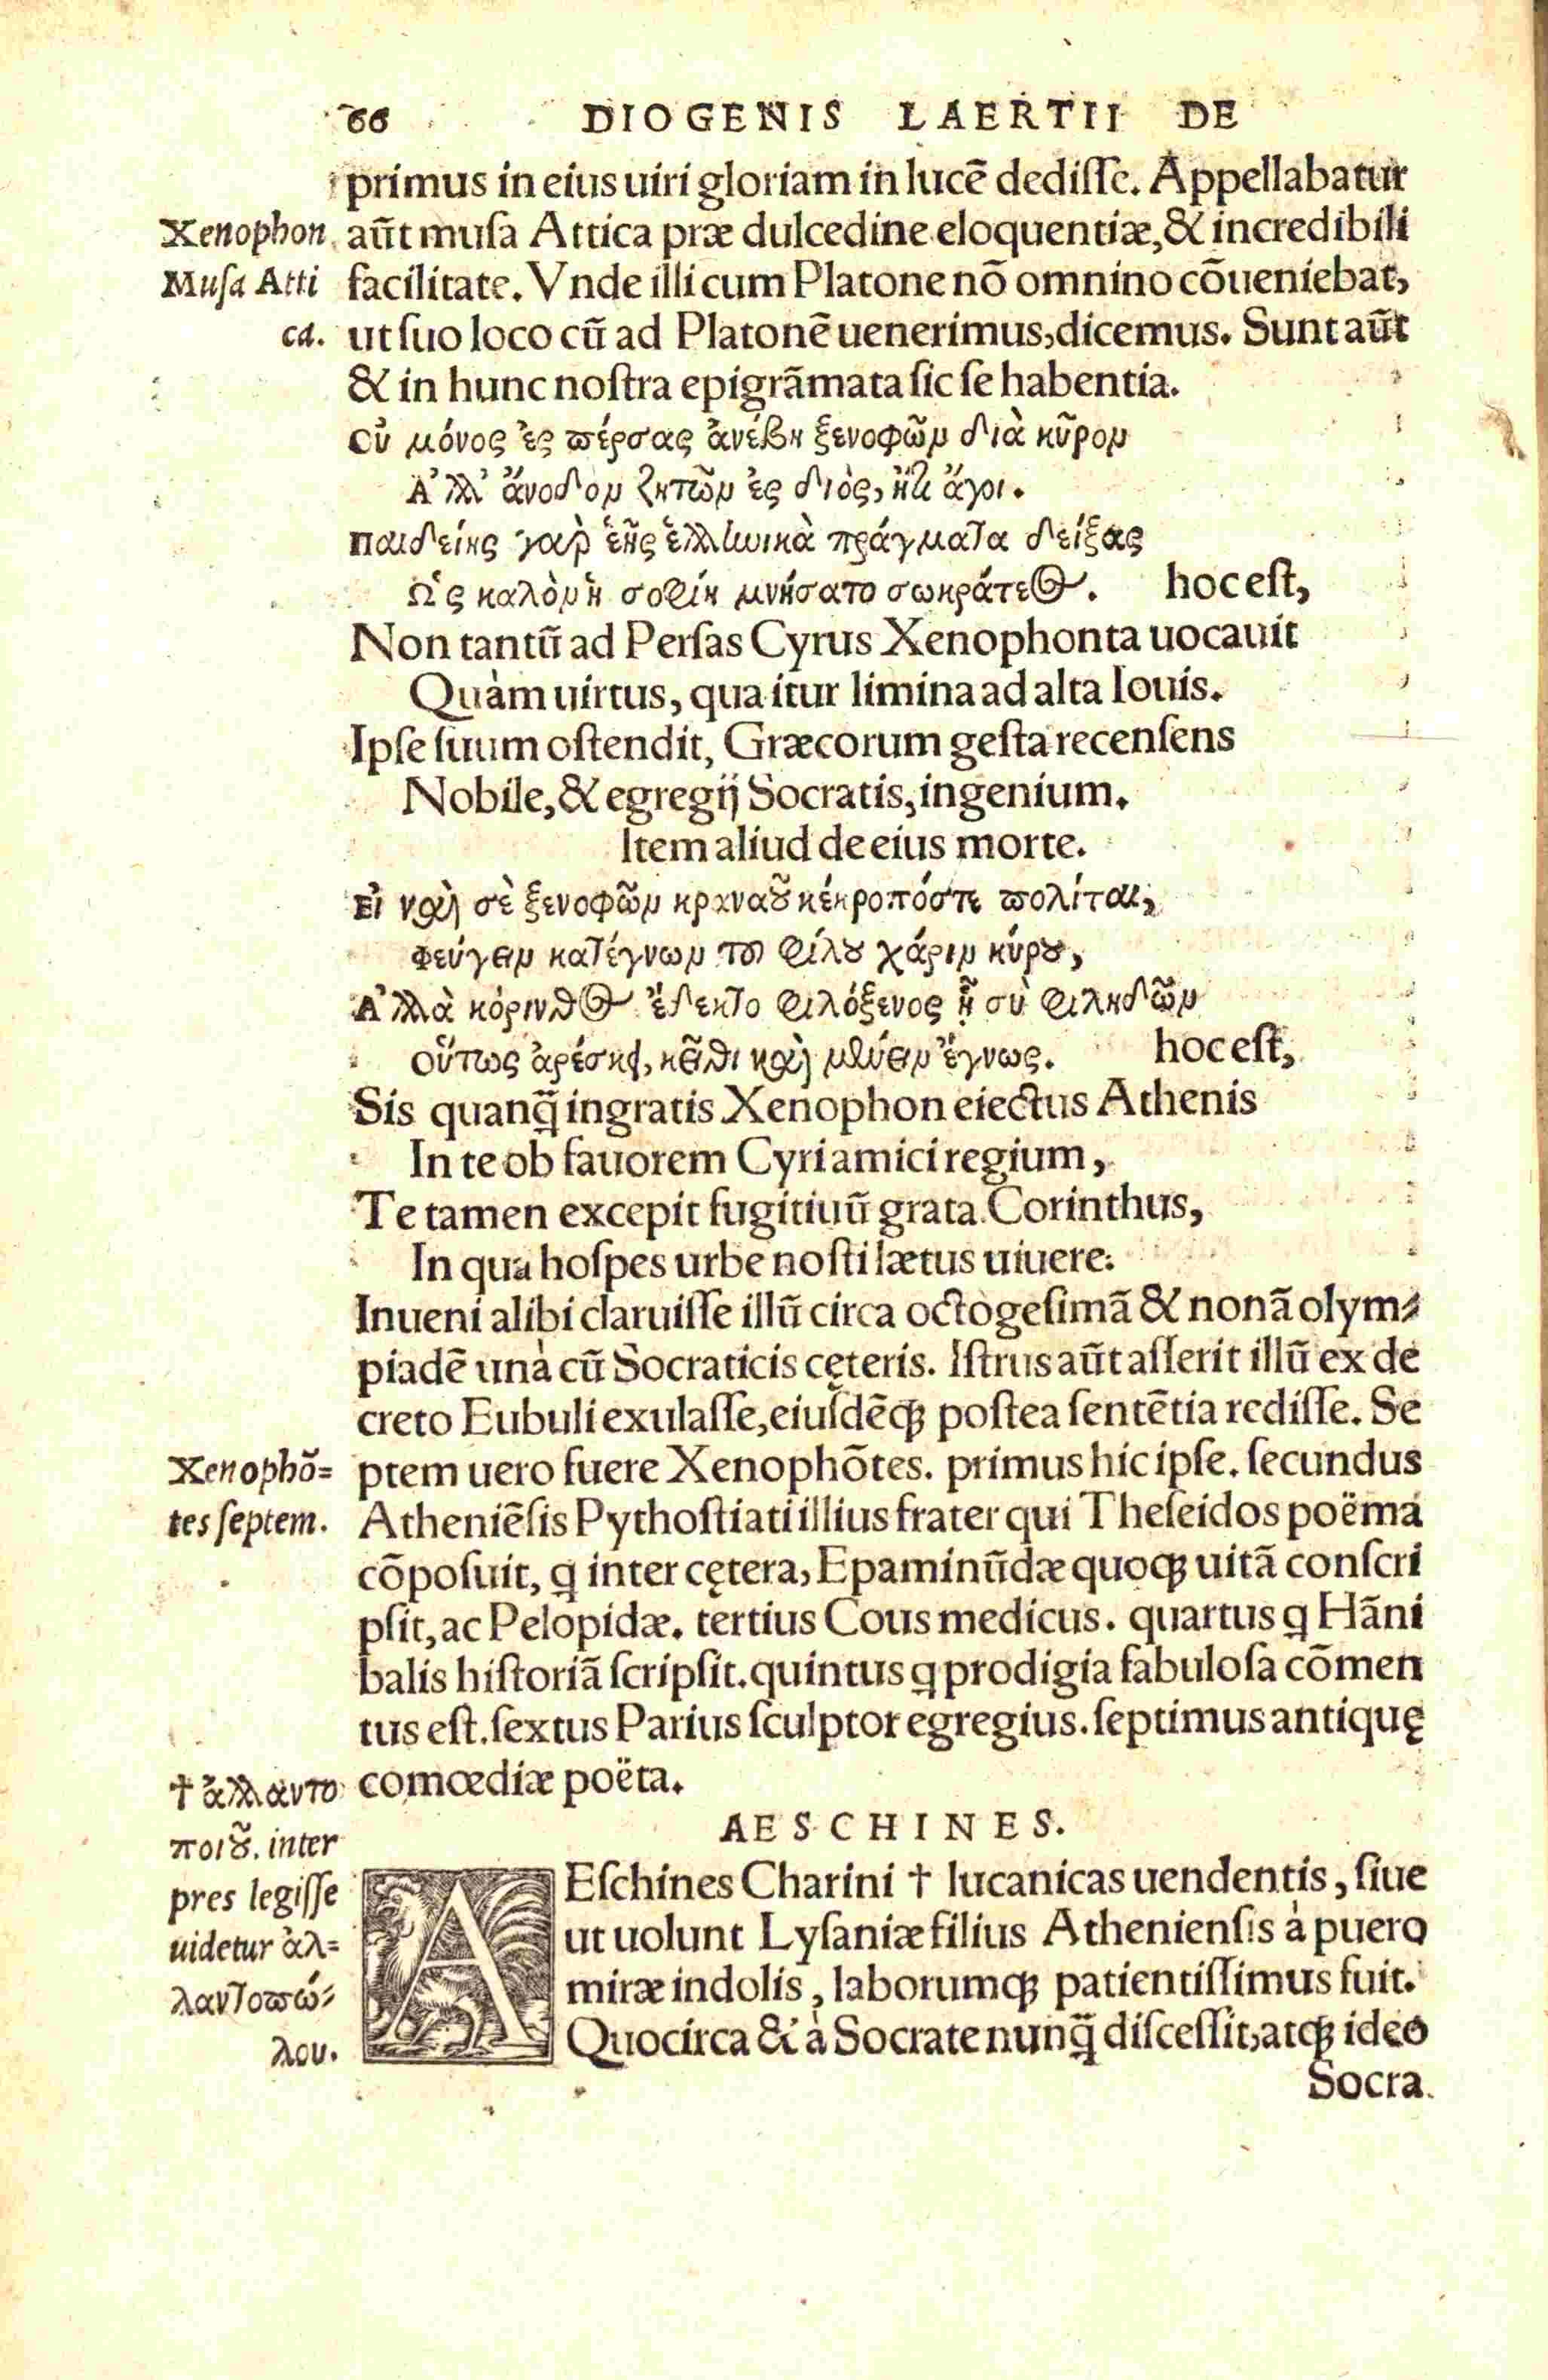 66 DIOGENIS LAERTII DE
primus in eius uiri gloriam in lucē dediſſe. Appellabatur
Xenophon
Muſa Atti
ca.
aūt muſa Attica præ dulcedine eloquentiæ, & incredibili
facilitate. Vnde illi cum Platone nō omnino cōueniebat,
ut ſuo loco cū ad Platonē uenerimus, dicemus. Sunt aūt
& in hunc noſtra epigrāmata ſic ſe habentia.
Οὐ μόνος ἐς πέρσας ἀνέβη ξενοφῶν διὰ κῦρον
Ἀλλ' ἄνοδον ζητῶν ἐς διὸς, ἥτις ἄγοι.
Παιδείης γὰρ ἑῆς ἑλληνικὰ πράγματα δείξας
Ὡς καλὸν ἡ σοφίη μνήσατο σωκράτεος. hoc eſt,
Non tantū ad Perſas Cyrus Xenophonta uocauit
Quàm uirtus, qua itur limina ad alta Iouis.
Ipſe ſuum oſtendit, Græcorum geſta recenſens
Nobile, & egregij Socratis, ingenium.
Item aliud de eius morte.
Εἰ καὶ σὲ ξενοφῶν κραναοῦ κέκροπός τε πολίται,
Φεύγειν κατέγνων τοῦ φίλου χάριν κύρου,
Ἀλλὰ κόρινθος ἔδεκτο φιλόξενος ᾗ σὺ φιληδῶν
Οὕτως ἀρέσκῃ, κεῖθι καὶ μένειν ἔγνως. hoc eſt,
Sis quanꝗ̄ ingratis Xenophon eiectus Athenis
In te ob fauorem Cyri amici regium,
Te tamen excepit fugitiuū grata Corinthus,
In qua hoſpes urbe noſti lætus uiuere.
Inueni alibi claruiſſe illū circa octogeſimā & nonā olym⸗
piadē unà cū Socraticis cęteris. Iſtrus aūt aſſerit illū ex de
creto Eubuli exulaſſe, eiuſdēqꝫ poſtea ſentētia rediſſe. Se
Xenophō=
tes ſeptem.
ptem uero fuere Xenophōtes. primus hic ipſe. ſecundus
Atheniēſis Pythoſtiati illius frater qui Theſeidos poëma
cōpoſuit, ꝗ inter cętera, Epaminūdæ quoqꝫ uitā conſcri
pſit, ac Pelopidæ. tertius Cous medicus. quartus ꝗ Hāni
balis hiſtoriā ſcripſit. quintus ꝗ prodigia fabuloſa cōmen
tus eſt. ſextus Parius ſculptor egregius. ſeptimus antiquę
comœdiæ poëta.
† ἀλλαντο
ποιοῦ. inter
pres legiſſe
uidetur ἀλ=
λαντοπώ⸗
λου.
AESCHINES.
AEſchines Charini † lucanicas uendentis, ſiue
ut uolunt Lyſaniæ filius Athenienſis à puero
miræ indolis, laborumqꝫ patientiſſimus fuit.
Quocirca & à Socrate nunꝗ̄ diſceſſit, atqꝫ ideo
Socra